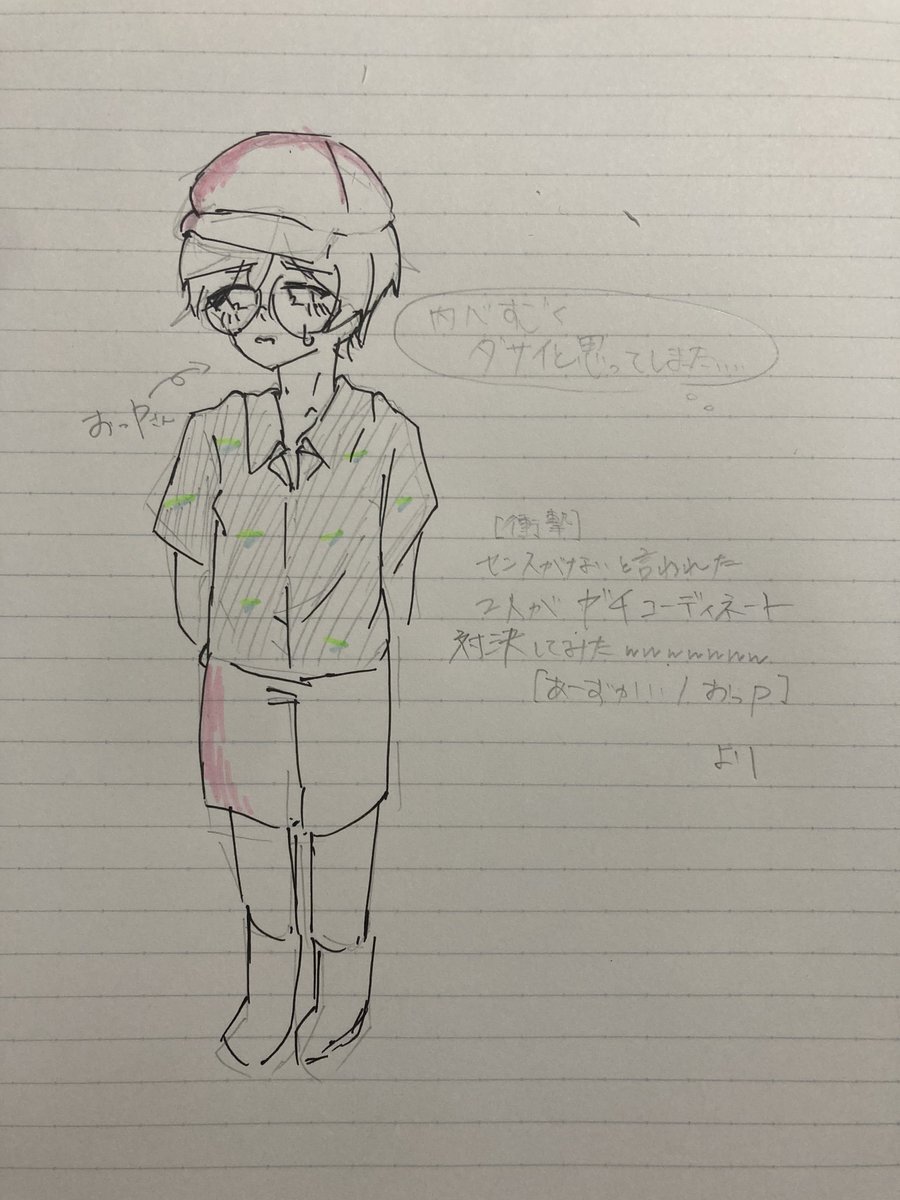 おっPさん
内心すごく
ダサイと思ってしまた...
[衝撃]
センスがないと言われた
2人がガチコーディネート
対決してみたwwwwwww
[あーずかい/おっP]
より